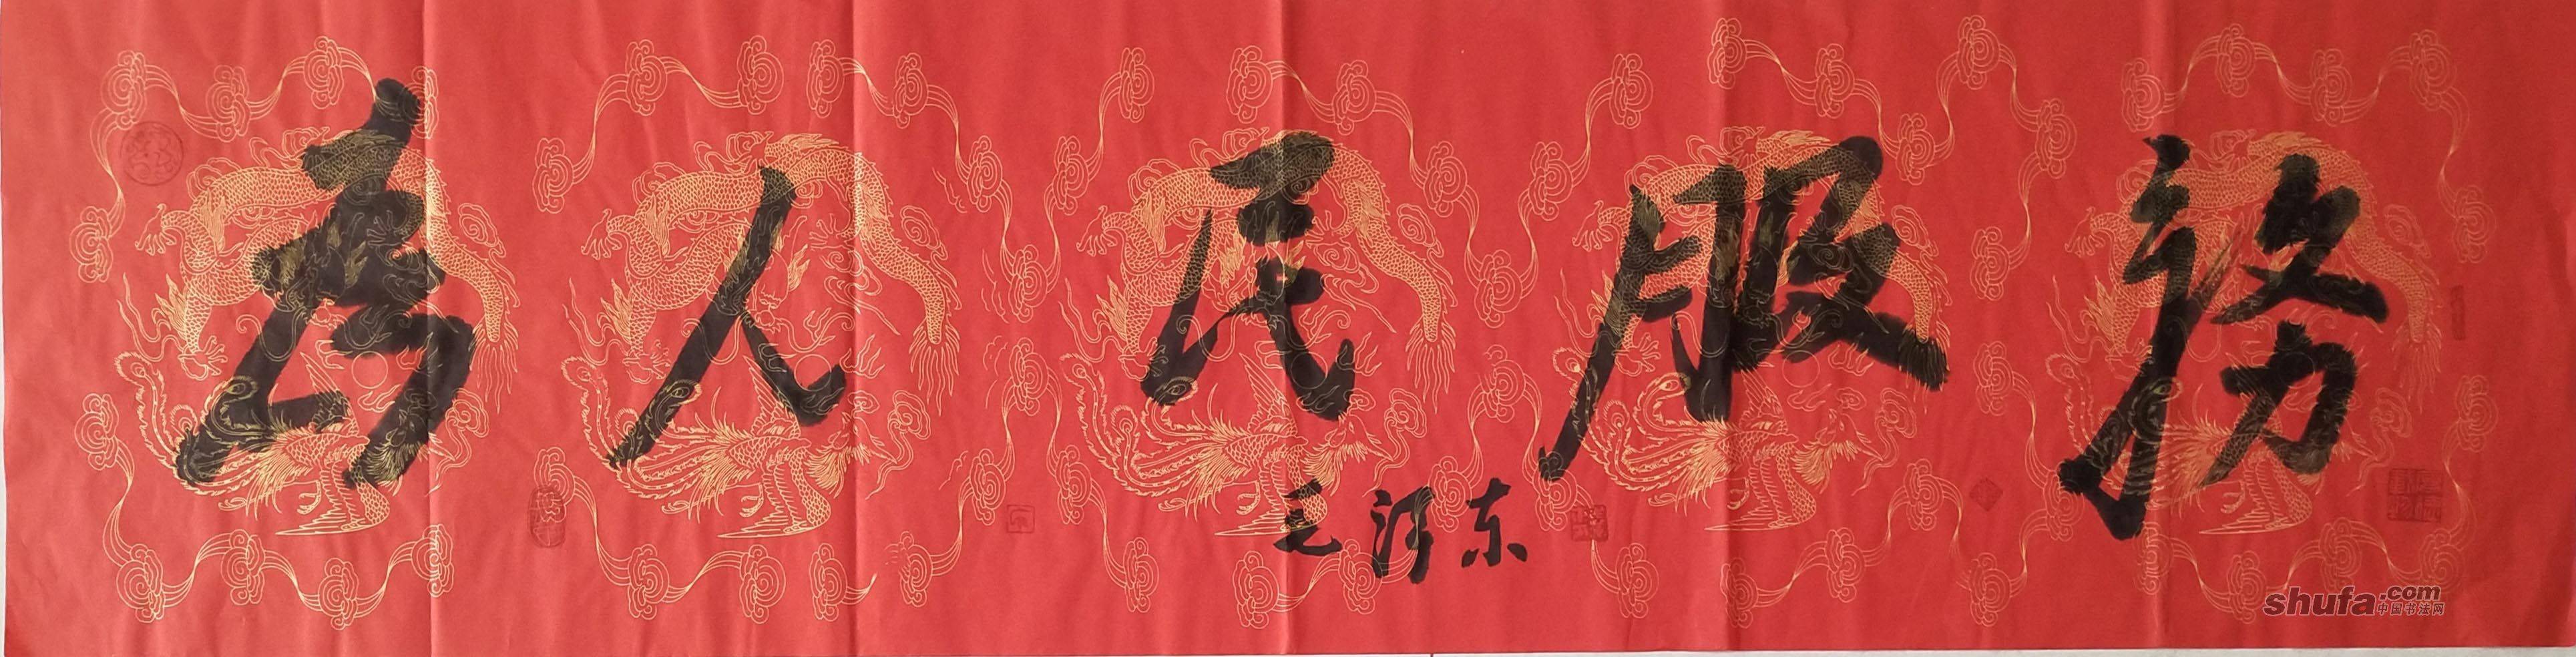 为人民服務
毛泽东
shufa.com
中国书法网